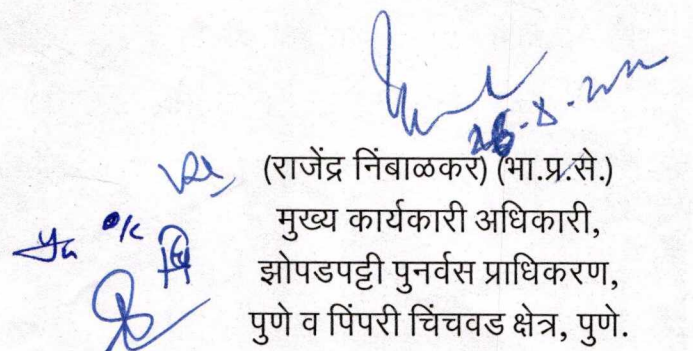 (राजेंद्र निंबाळकर) (भा.प्र.से.)
मुख्य कार्यकारी अधिकारी,
झोपडपट्टी पुनर्वस प्राधिकरण,
पुणे व पिंपरी चिंचवड क्षेत्र, पुणे.